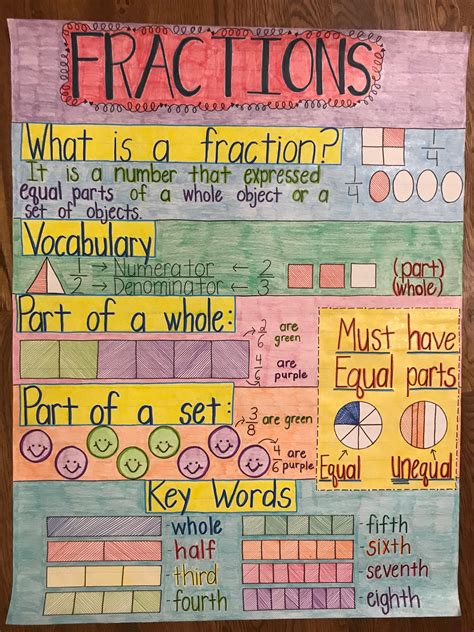 FRACTIONS
What is a fraction?
1/4
It is a number that expressed
equal parts of a whole object or a
set of objects.
1/4
Vocabulary
1/2 → Numerator ← 2/3 (part)
→ Denominator ← (whole)
Part of a whole:
2/6 are
green
4/6 are
purple
Part of a set:
3/8 are green
4/6 are
purple
Must have
Equal parts
Equal Unequal
Key Words
-whole
-half
-third
-fourth
-fifth
-sixth
-seventh
-eighth